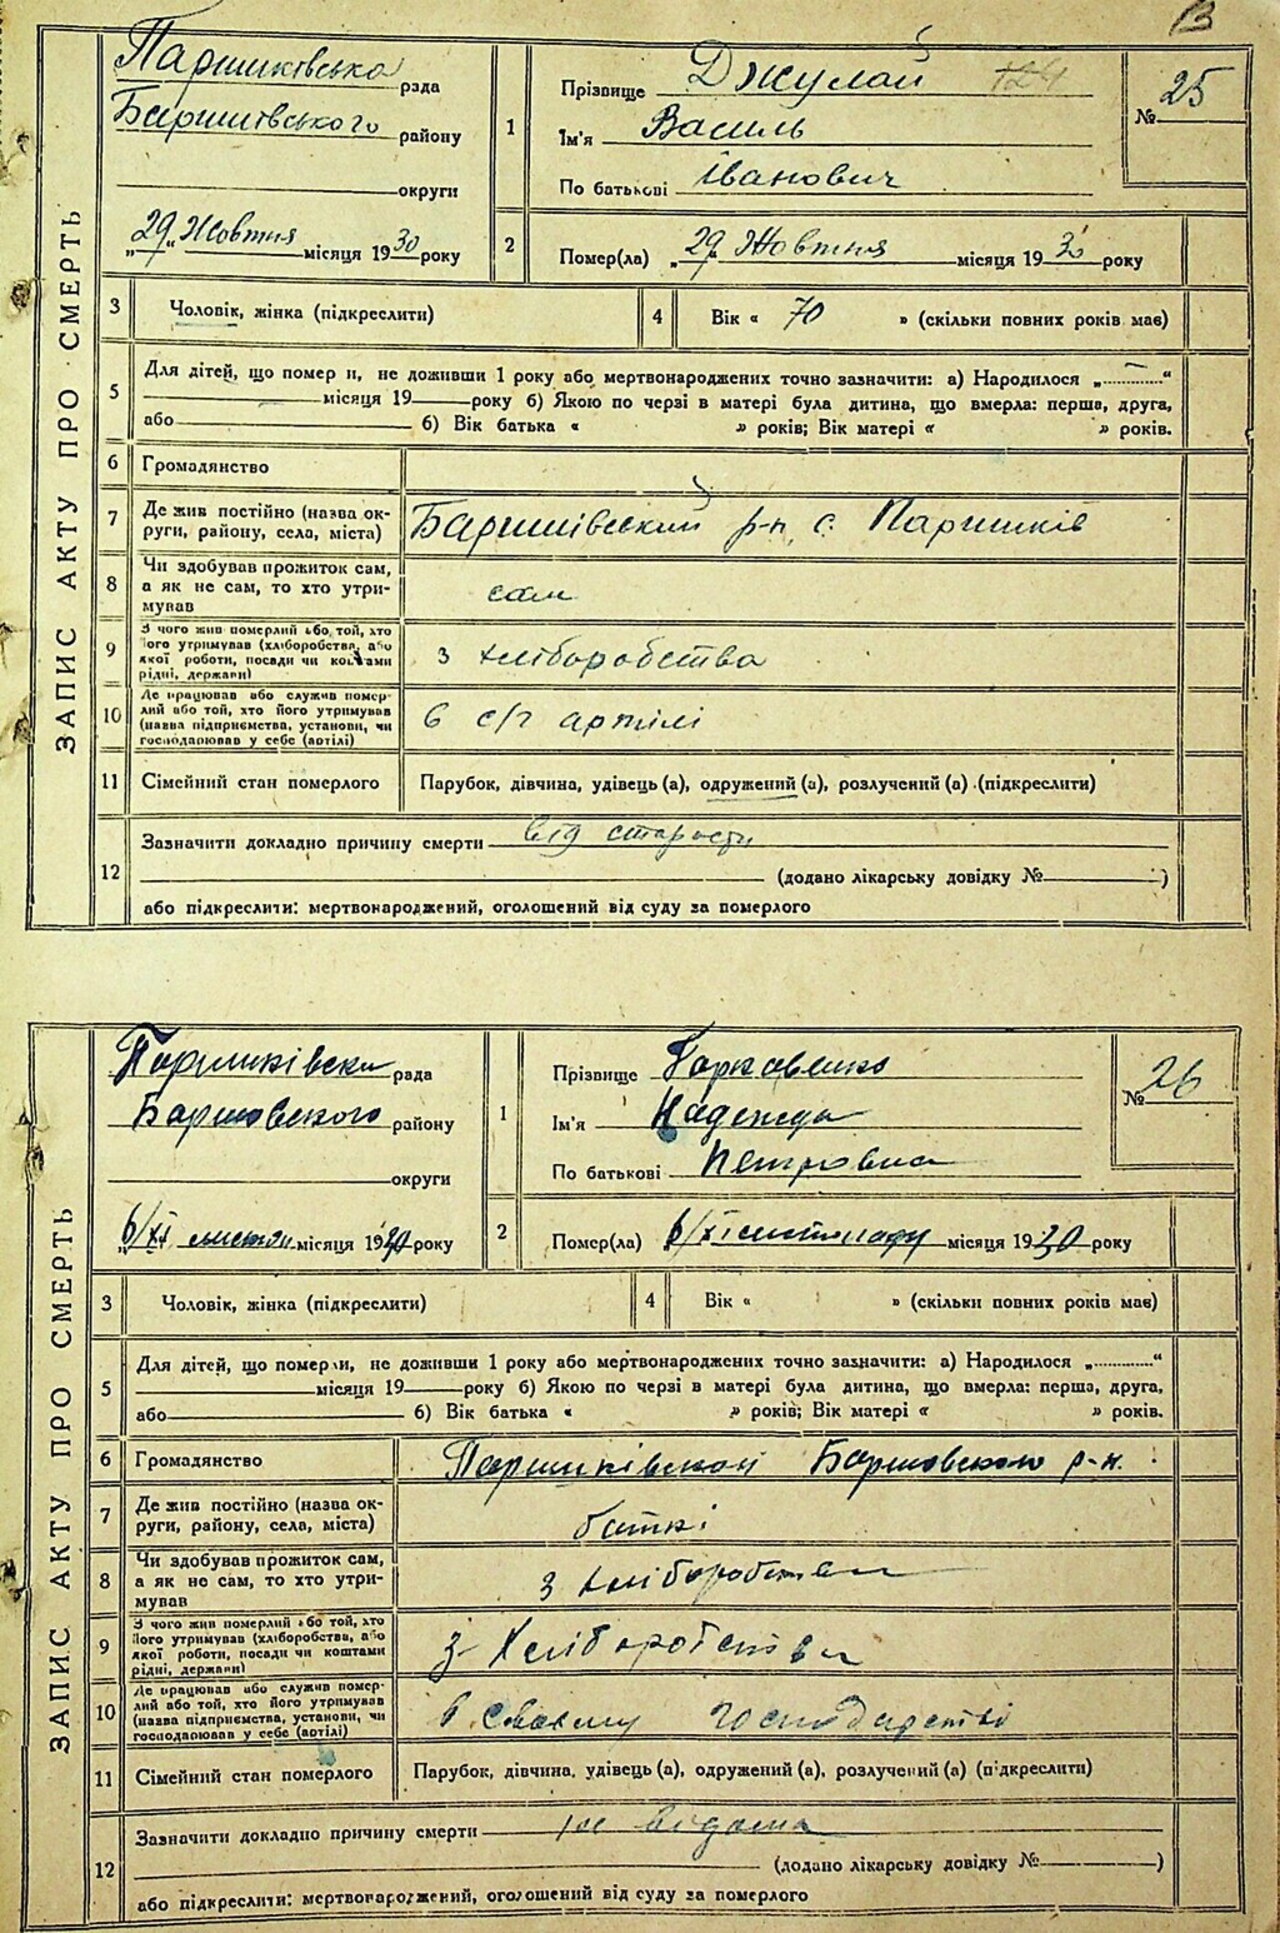 13
ЗАПИС АКТУ ПРО СМЕРТЬ
Паришківська рада
Баришівського району
округи
„29“ Жовтня місяця 1930 року
1
Прізвище Джулай
Ім'я Василь
По батькові Іванович
№ 25
2
Помер(ла) „29“ Жовтня місяця 1930 року
3 Чоловік, жінка (підкреслити)
4 Вік « 70 » (скільки повних років має)
5 Для дітей, що помер и, не доживши 1 року або мертвонароджених точно зазначити: а) Народилося „ “
місяця 19 року б) Якою по черзі в матері була дитина, що вмерла: перша, друга,
або б) Вік батька « » років; Вік матері « » років.
6 Громадянство
7 Де жив постійно (назва ок-
руги, району, села, міста) Баришівський р-н, с. Паришків
8 Чи здобував прожиток сам,
а як не сам, то хто утри-
мував сам
9 З чого жив померлий або той, хто
його утримував (хліборобства, або
якої роботи, посади чи коштами
рідні, держави) з хліборобства
10 Де працював або служив помер-
лий або той, хто його утримував
(назва підприємства, установи, чи
господарював у себе (артілі) в с/г артілі
11 Сімейний стан померлого Парубок, дівчина, удівець (а), одружений (а), розлучений (а) (підкреслити)
12 Зазначити докладно причину смерти від старости
(додано лікарську довідку № )
або підкреслити: мертвонароджений, оголошений від суду за померлого
ЗАПИС АКТУ ПРО СМЕРТЬ
Паришківска рада
Баришовского району
округи
„6/XI листоп місяця 1930 року
1
Прізвище Гаркавенко
Ім'я Надежда
По батькові Петровна
№ 26
2
Помер(ла) 6/XI листопаду місяця 1930 року
3 Чоловік, жінка (підкреслити)
4 Вік « » (скільки повних років має)
5 Для дітей, що померли, не доживши 1 року або мертвонароджених точно зазначити: а) Народилося „ “
місяця 19 року б) Якою по черзі в матері була дитина, що вмерла: перша, друга,
або б) Вік батька « » років; Вік матері « » років.
6 Громадянство Паришківской Баришовского р-н.
7 Де жив постійно (назва ок-
руги, району, села, міста) батькі
8 Чи здобував прожиток сам,
а як не сам, то хто утри-
мував з хліборобства
9 З чого жив померлий або той, хто
його утримував (хліборобства, або
якої роботи, посади чи коштами
рідні, держави) з Хліборобства
10 Де працював або служив помер-
лий або той, хто його утримував
(назва підприємства, установи, чи
господарював у себе (артілі) в своєму господарстві
11 Сімейний стан померлого Парубок, дівчина, удівець (а), одружений (а), розлучений (а) (підкреслити)
12 Зазначити докладно причину смерти не відома
(додано лікарську довідку № )
або підкреслити: мертвонароджений, оголошений від суду за померлого